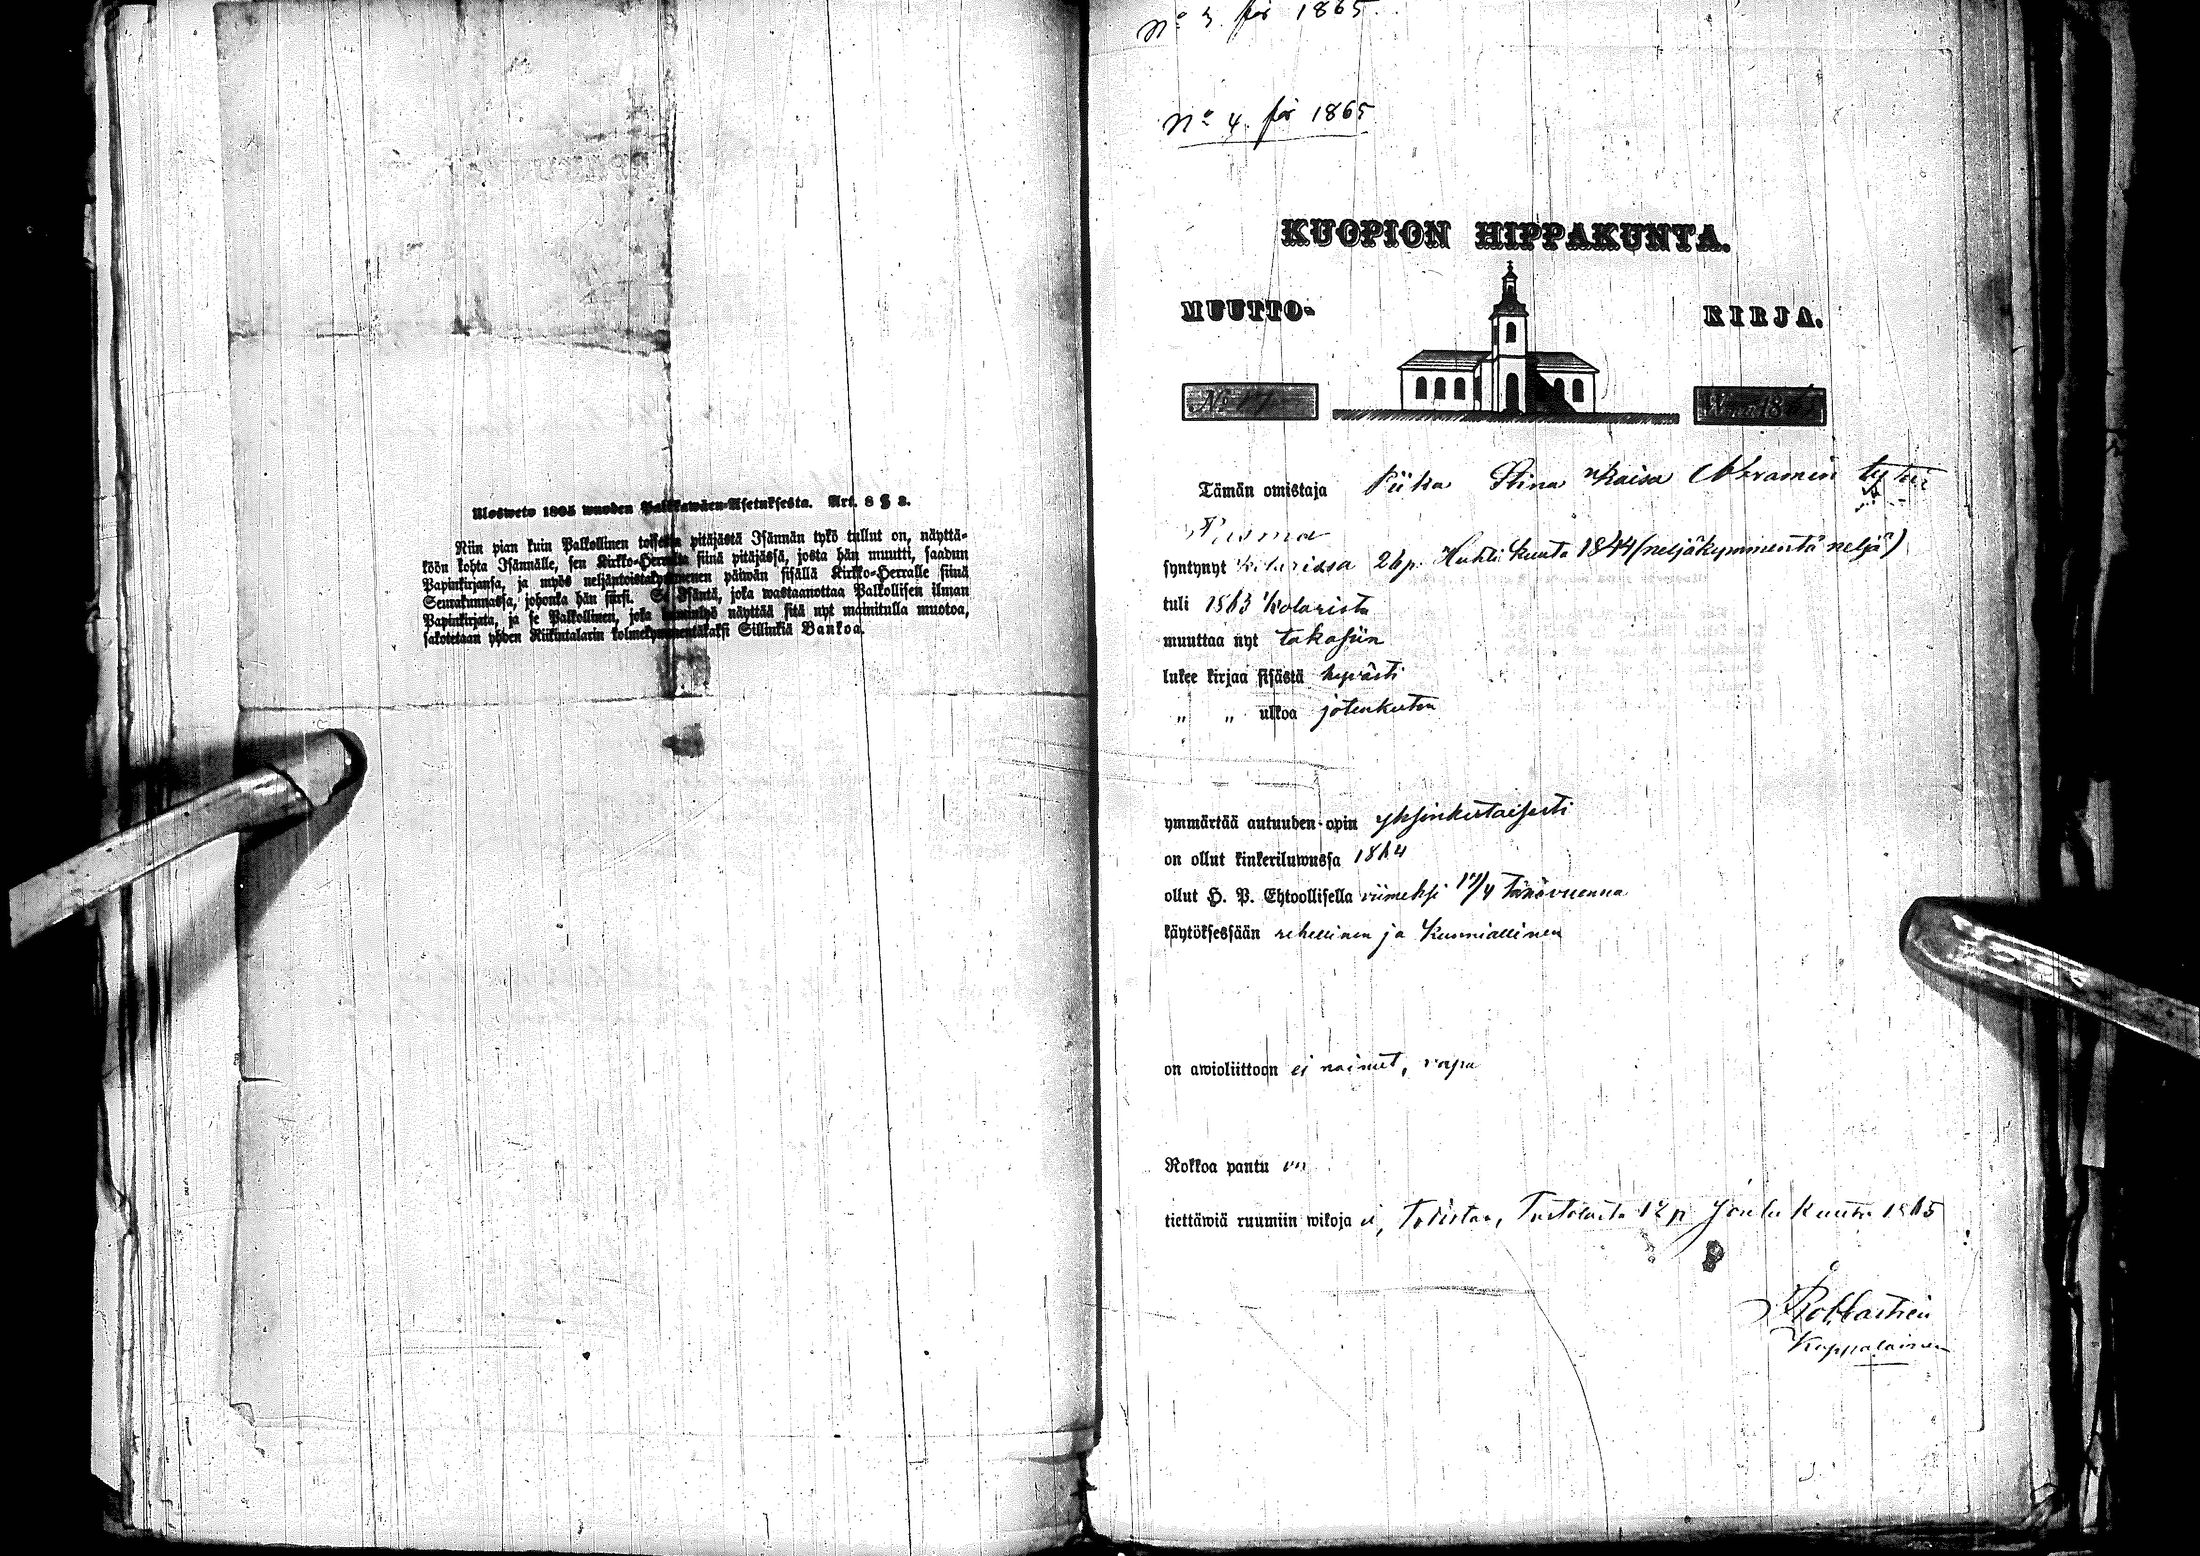 Ulosweto 1805 wuoden Palkkawäen-Asetuksesta. Art. 8 § 2.
Niin pian kuin Palkollinen toisesta pitäjästä Isännän tykö tullut on, näyttä-
köön kohta Isännälle, sen Kirkko-Herralta siinä pitäjässä, josta hän muutti, saadun
Papinkirjansa, ja myös neljäntoistakymmenen päiwän sisällä Kirkko-Herralle siinä
Seurakunnassa, johonka hän siirsi. Se Isäntä, joka wastaanottaa Palkollisen ilman
Papinkirjata, ja se Palkollinen, joka näyttää sitä nyt mainitulla muotoa,
sakotetaan yhden Riikintalarin kolmekymmentäkaksi Sillinkiä Bankoa.
No 3 för 1865.
No 4 för 1865
KUOPION HIPPAKUNTA.
MUUTTO- KIRJA.
No Wuon 18
Tämän omistaja Piika Stina Kaisa Abramin tytär
syntynyt Kolarissa 26 p. Huhti kuuta 1844 (neljäkymmentä neljä)
tuli 1863 Kolarista
muuttaa nyt takasiin
lukee kirjaa sisästä hyvästi
„ „ ulkoa jotenkuten
ymmärtää autuuden-opin yksinkertaisesti
on ollut kinkeriluwussa 1864
ollut H. P. Ehtoollisella viimeksi /4 tänävuonna
käytöksessään rehellinen ja kunniallinen
on awioliittoon ei nainut, vapa
Rokkoa pantu on
tiettäwiä ruumiin wikoja ei, Todistaa, 12 p. Joulu kuuta 1865
Kappalainen